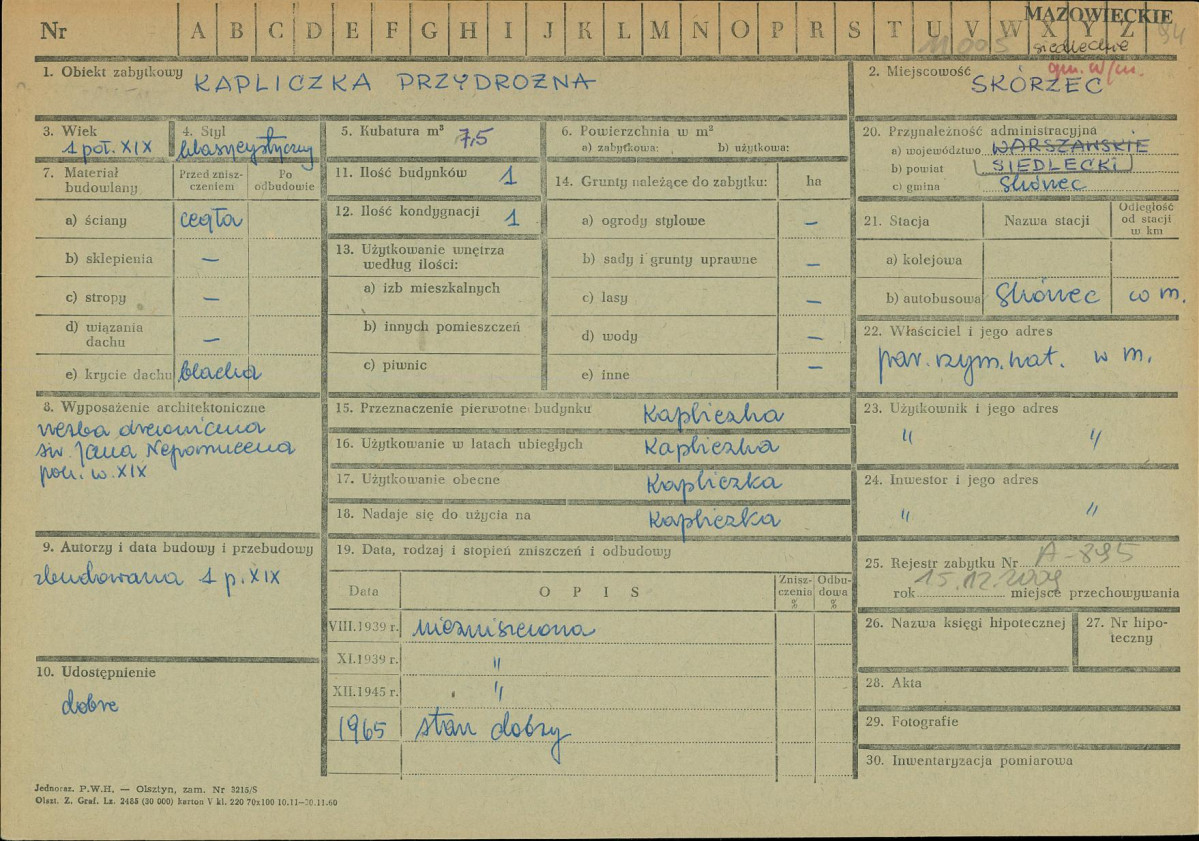 Nr A B C D E F G H I J K L M N O P R S T U V W X Y Z
MAZOWIECKIE
siedleckie
11005
94
1. Obiekt zabytkowy KAPLICZKA PRZYDROŻNA
2. Miejscowość SKÓRZEC
gm. w/m.
3. Wiek
1 poł. XIX
4. Styl
klasycystyczny
5. Kubatura m³ 7,5
6. Powierzchnia w m²
a) zabytkowa: b) użytkowa:
7. Materiał budowlany
Przed zniszczeniem
Po odbudowie
a) ściany cegła
b) sklepienia —
c) stropy —
d) wiązania dachu —
e) krycie dachu blacha
8. Wyposażenie architektoniczne
rzeźba drewniana
św. Jana Nepomucena
poł. w. XIX
9. Autorzy i data budowy i przebudowy
zbudowana 1 p. XIX
10. Udostępnienie
dobre
11. Ilość budynków 1
12. Ilość kondygnacji 1
13. Użytkowanie wnętrza
według ilości:
a) izb mieszkalnych
b) innych pomieszczeń
c) piwnic
14. Grunty należące do zabytku: ha
a) ogrody stylowe —
b) sady i grunty uprawne —
c) lasy —
d) wody —
e) inne —
15. Przeznaczenie pierwotne budynku kapliczka
16. Użytkowanie w latach ubiegłych kapliczka
17. Użytkowanie obecne kapliczka
18. Nadaje się do użycia na kapliczka
19. Data, rodzaj i stopień zniszczeń i odbudowy
Data O P I S Zniszczenia % Odbudowa %
VIII.1939 r. niezniszczona
XI.1939 r. "
XII.1945 r. "
1965 stan dobry
20. Przynależność administracyjna
a) województwo WARSZAWSKIE
b) powiat SIEDLECKI
c) gmina Skórzec
21. Stacja Nazwa stacji Odległość od stacji w km
a) kolejowa
b) autobusowa Skórzec w m.
22. Właściciel i jego adres
par. rzym. kat. w m.
23. Użytkownik i jego adres
" "
24. Inwestor i jego adres
" "
25. Rejestr zabytku Nr A-895
rok 15.12.2009 miejsce przechowywania
26. Nazwa księgi hipotecznej
27. Nr hipoteczny
28. Akta
29. Fotografie
30. Inwentaryzacja pomiarowa
Jednoraz. P.W.H. — Olsztyn, zam. Nr 3215/S
Olszt. Z. Graf. Lz. 2485 (30 000) karton V kl. 220 70x100 10.11—30.11.60